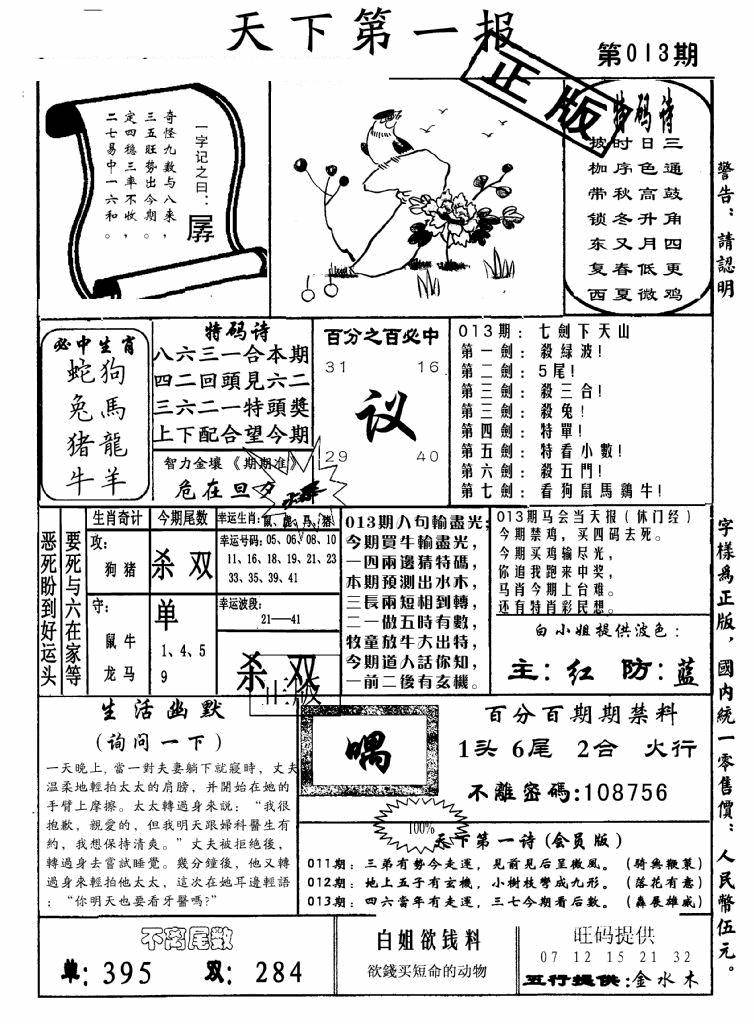 天下第一报
第013期
正版
一字记之曰：孱
奇怪九數与八來，
三五旺势出今期。
定四稳三率不收，
二七易中一六和。
特码诗
披时日三
枷序色通
带秋高鼓
锁冬升角
东又月四
复春低更
西夏微鸡
警告：請認明
字樣為正版，國内統一零售價：人民幣伍元。
必中生肖
蛇狗
兔馬
猪龍
牛羊
特码诗
八六三一合本期
四二回頭見六二
三六二一特頭獎
上下配合望今期
智力金壤《期期准》
危在旦夕
百分之百必中
31 16
议
29 40
013期：七劍下天山
第一劍：殺绿波！
第二劍：5尾！
第三劍：殺三合！
第三劍：殺兔！
第四劍：特單！
第五劍：特看小數！
第六劍：殺五門！
第七劍：看狗鼠馬鷄牛！
要死与六在家等
恶死盼到好运头
生肖奇计
攻：
狗猪
守：
鼠牛
龙马
今期尾数
杀双
单
1、4、5
9
幸运生肖：鼠、龙、马、猪
幸运号码：05、06、08、10
11、16、18、19、21、23
33、35、39、41
幸运波段：
21—41
杀双
013期八句輸盡光；
今期買牛輸盡光，
一四兩邊猜特碼，
本期預測出水木，
三長兩短相到轉，
二一做五時有數，
牧童放牛大出特，
今期道人話你知，
一前二後有玄機。
013期马会当天报（休门经）
今期禁鸡，买四码去死。
今期买鸡输尽光，
你追我跑来中奖，
马肖今期上台难。
还有特肖彩民想。
白小姐提供波色：
主：红 防：蓝
生活幽默
（询问一下）
一天晚上，當一對夫妻躺下就寢時，丈夫
温柔地輕拍太太的肩膀，并開始在她的
手臂上摩擦。太太轉過身来說：“我很
抱歉，親愛的，但我明天跟婦科醫生有
約，我想保持清爽。”丈夫被拒絕後，
轉過身去嘗試睡覺。幾分鐘後，他又轉
過身来輕拍他太太，這次在她耳邊輕語
：“你明天也要看牙醫嗎？”
喁
百分百期期禁料
1头 6尾 2合 火行
不離密碼：108756
100%
天下第一诗（会员版）
011期：三弟有勢今走運，見前見后呈微風。（骑無鞭策）
012期：地上五子有玄機，小樹枝彎成九形。（落花有意）
013期：四六當年有走運，三七今期看后數。（轟展雄威）
不离尾数
单：395 双：284
白姐欲钱料
欲錢买短命的动物
旺码提供
07 12 15 21 32
五行提供：金水木